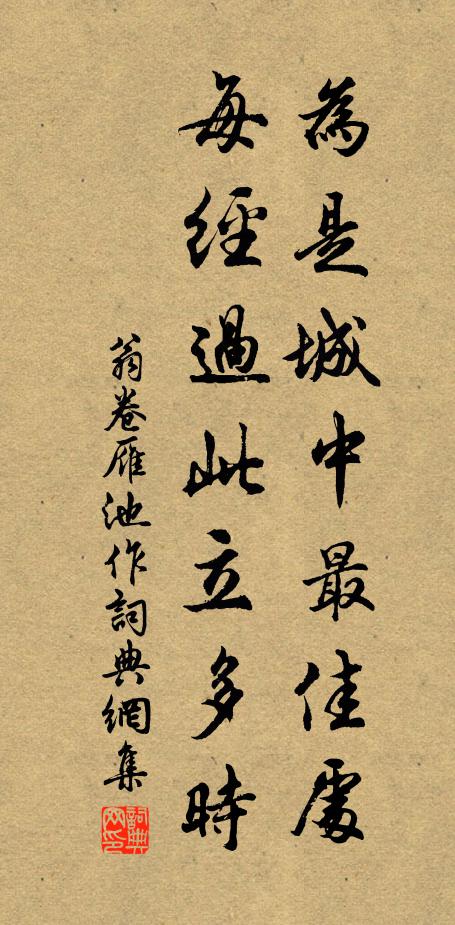 為是城中最佳處
每經過此立多時
翁卷雁池作詞典網集
詞典
网印